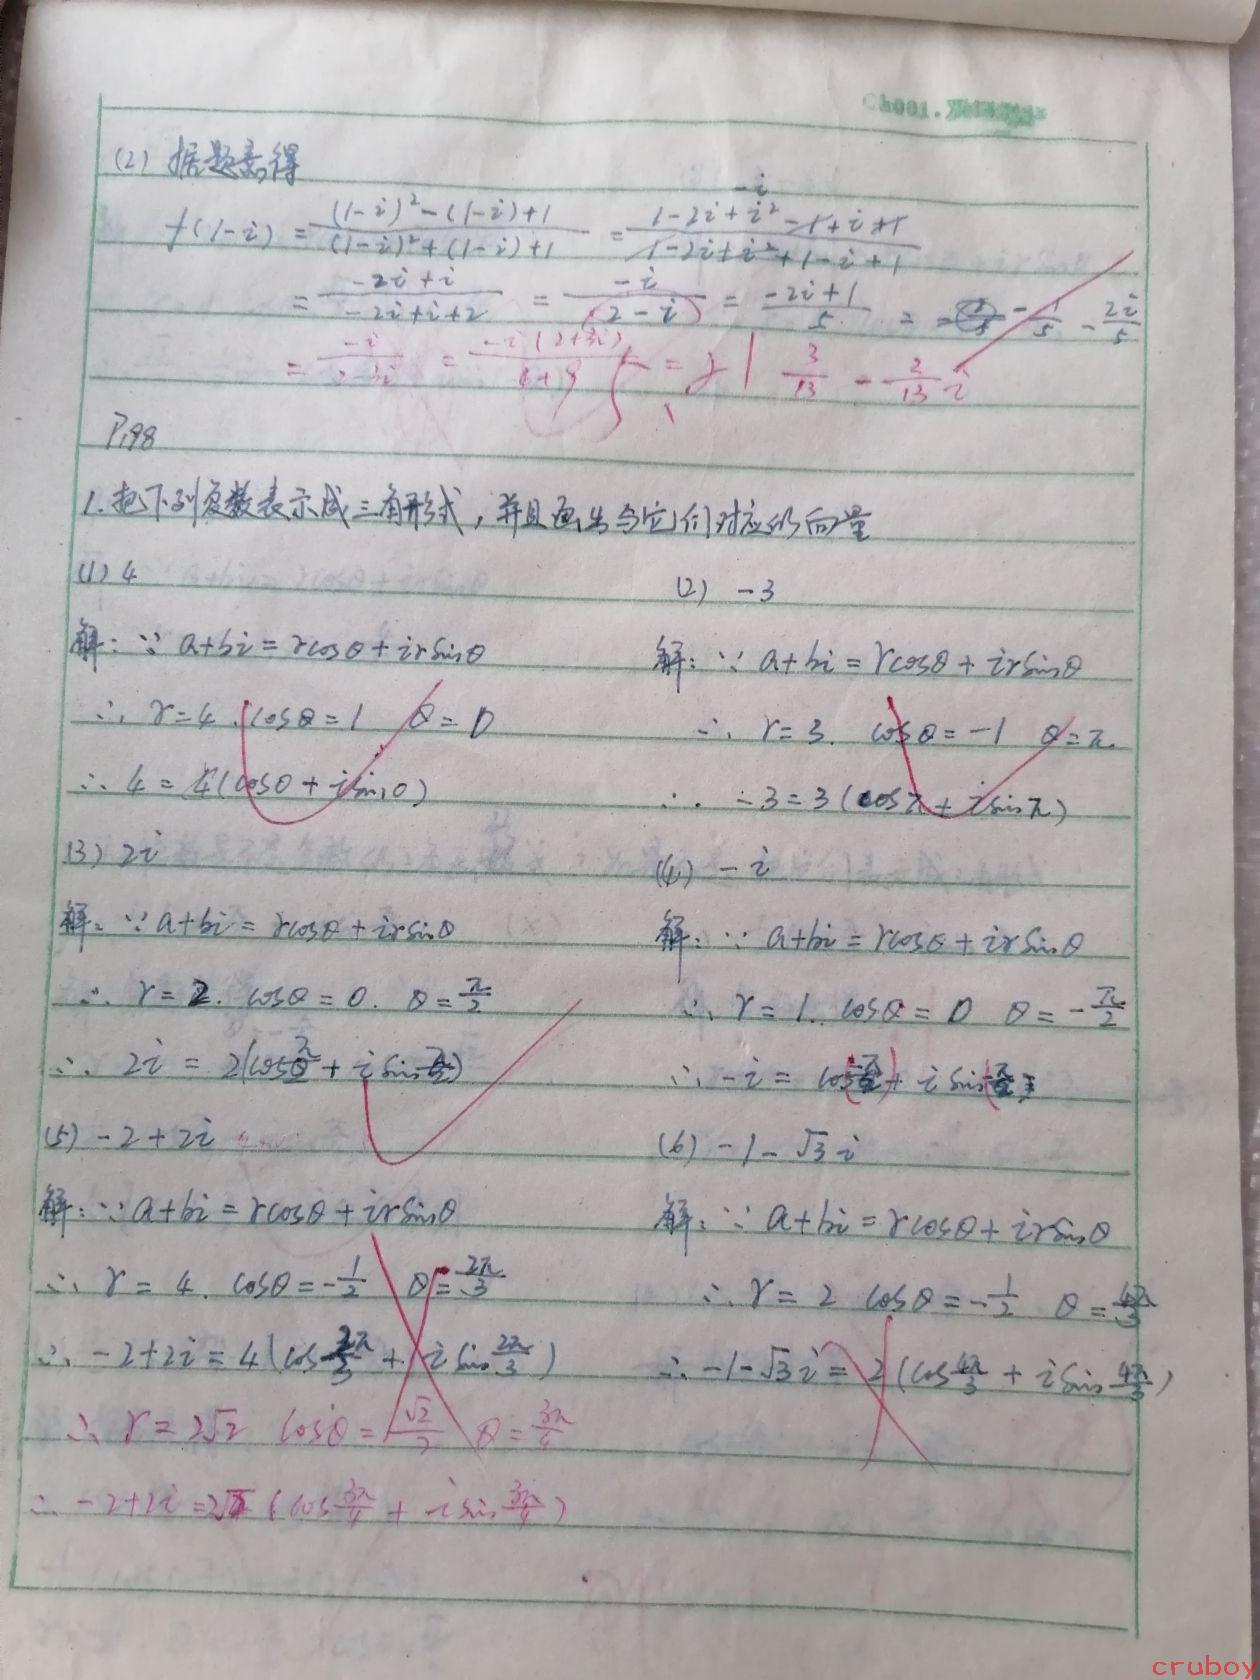 Ch001.
(2) 据题意得
f(1-i) = \frac{(1-i)^2-(1-i)+1}{(1-i)^2+(1-i)+1} = \frac{1-2i+i^2-1+i+1}{1-2i+i^2+1-i+1}
-i
= \frac{-2i+i}{-2i+i+2} = \frac{-i}{2-i} = \frac{-2i+1}{5} = \frac{1}{5} - \frac{2i}{5}
= \frac{-i}{2-3i} = \frac{-i(2+3i)}{4+9} = \frac{3}{13} - \frac{2}{13}i
P198
1. 把下列复数表示成三角形式,并且画出与它们对应的向量
(1) 4
解: ∵ a+bi = rcosθ + irsinθ
∴ r=4. cosθ=1 θ=0
∴ 4 = 4(cos0 + isin0)
(2) -3
解: ∵ a+bi = rcosθ + irsinθ
∴ r=3. cosθ=-1 θ=π
∴ -3=3(cosπ + isinπ)
(3) 2i
解: ∵ a+bi = rcosθ + irsinθ
∴ r=2. cosθ=0. θ=\frac{π}{2}
∴ 2i = 2(cos\frac{π}{2} + isin\frac{π}{2})
(4) -i
解: ∵ a+bi = rcosθ + irsinθ
∴ r=1. cosθ=0 θ=-\frac{π}{2}
∴ -i = cos(-\frac{π}{2}) + isin(-\frac{π}{2})
(5) -2+2i
解: ∵ a+bi = rcosθ + irsinθ
∴ r=4. cosθ=-\frac{1}{2} θ=\frac{2π}{3}
∴ -2+2i=4(cos\frac{2π}{3} + isin\frac{2π}{3})
∴ r=2√2 cosθ=-\frac{√2}{2} θ=\frac{3π}{4}
∴ -2+2i=2√2(cos\frac{3π}{4} + isin\frac{3π}{4})
(6) -1-√3i
解: ∵ a+bi = rcosθ + irsinθ
∴ r=2 cosθ=-\frac{1}{2} θ=\frac{4π}{3}
∴ -1-√3i = 2(cos\frac{4π}{3} + isin\frac{4π}{3})
cruboy